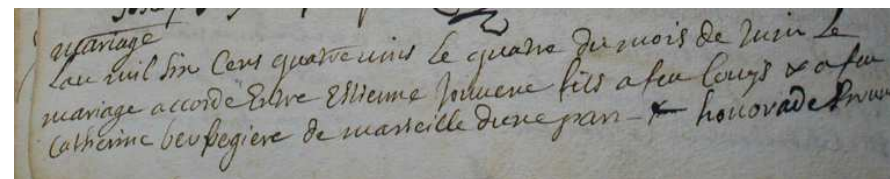 mariage
Lan mil six Cens quatre vins Le quatre du mois de Juin Le
mariage accorde Entre Estienne Jouvene fils a feu Louys & a feu
Catherine de marseille dune part & honorade